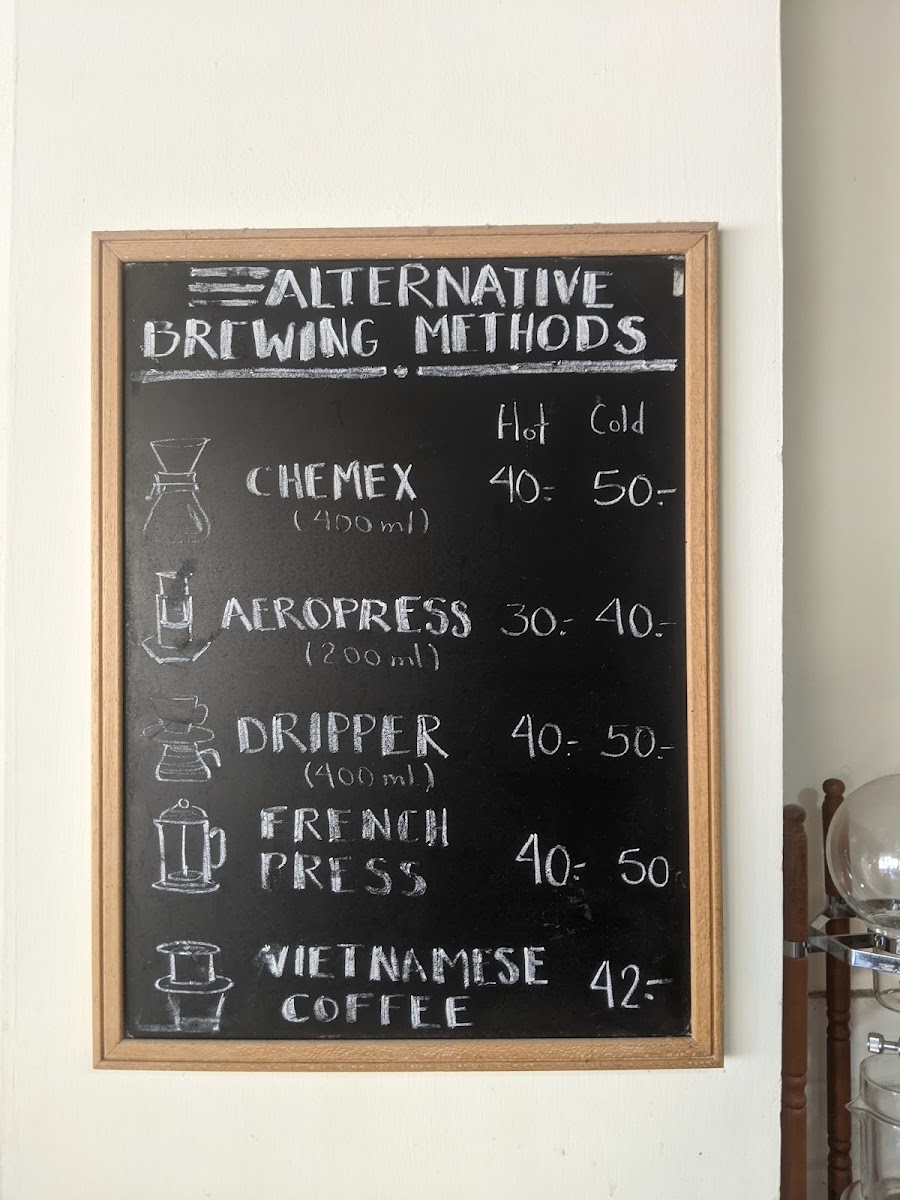 ALTERNATIVE
BREWING METHODS
Hot Cold
CHEMEX 40.- 50.-
(400ml)
AEROPRESS 30.- 40.-
(200ml)
DRIPPER 40.- 50.-
(400ml)
FRENCH
PRESS 40.- 50
VIETNAMESE
COFFEE 42.-